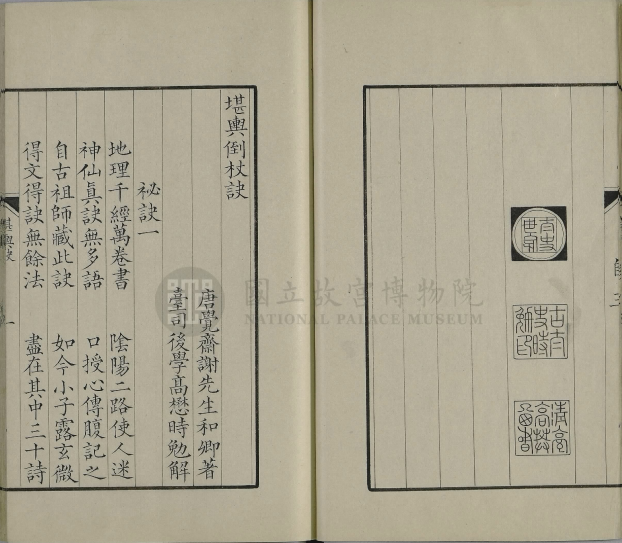 堪輿倒杖訣
唐覺齋謝先生和卿著
臺司後學高懋時勉解
祕訣一
地理千經萬卷書 陰陽二路使人迷
神仙眞訣無多語 口授心傳腹記之
自古祖師藏此訣 如今小子露玄微
得文得訣無餘法 盡在其中三十詩
堪輿訣
一
國立故宮博物院
NATIONAL PALACE MUSEUM